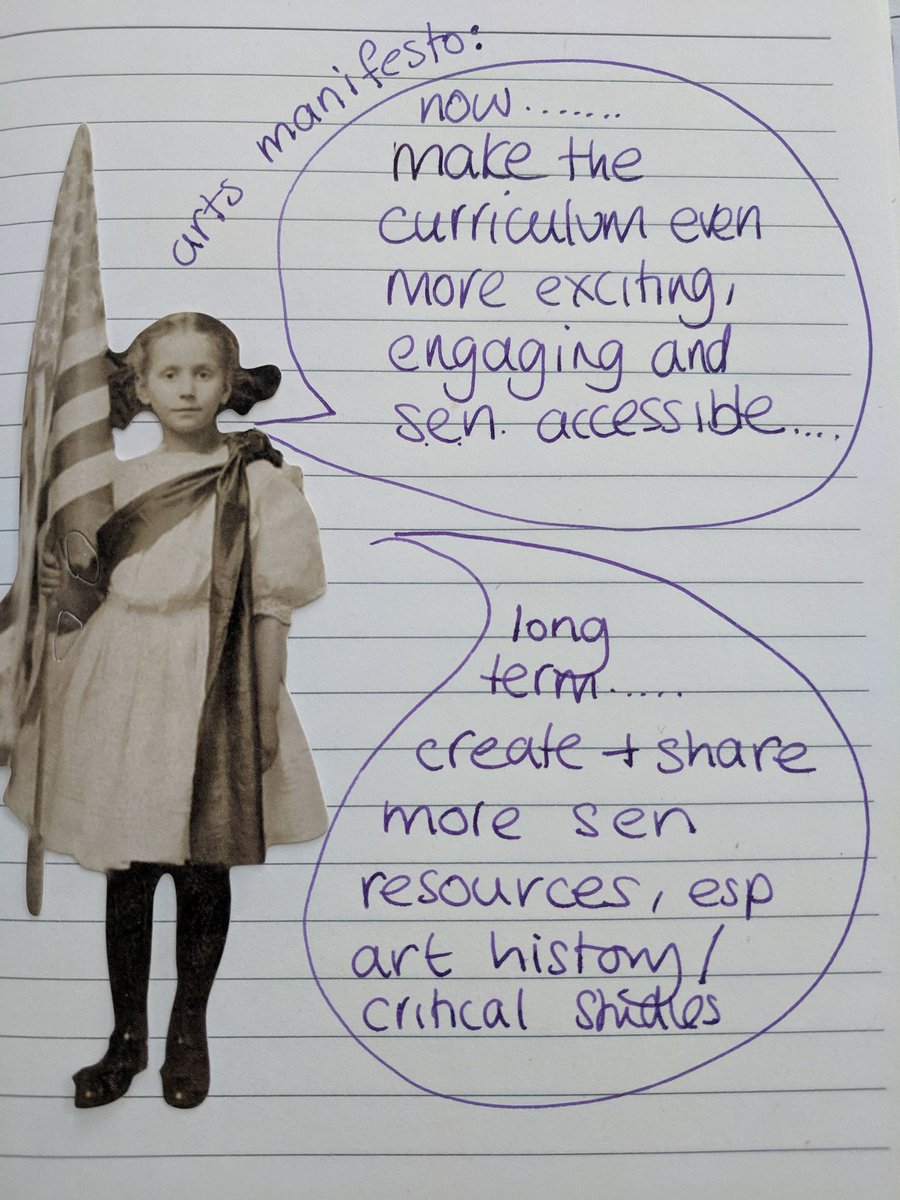 arts manifesto:
now.......
make the
curriculum even
more exciting,
engaging and
s.e.n. accessible....
long
term.....
create + share
more sen
resources, esp
art history/
critical studies